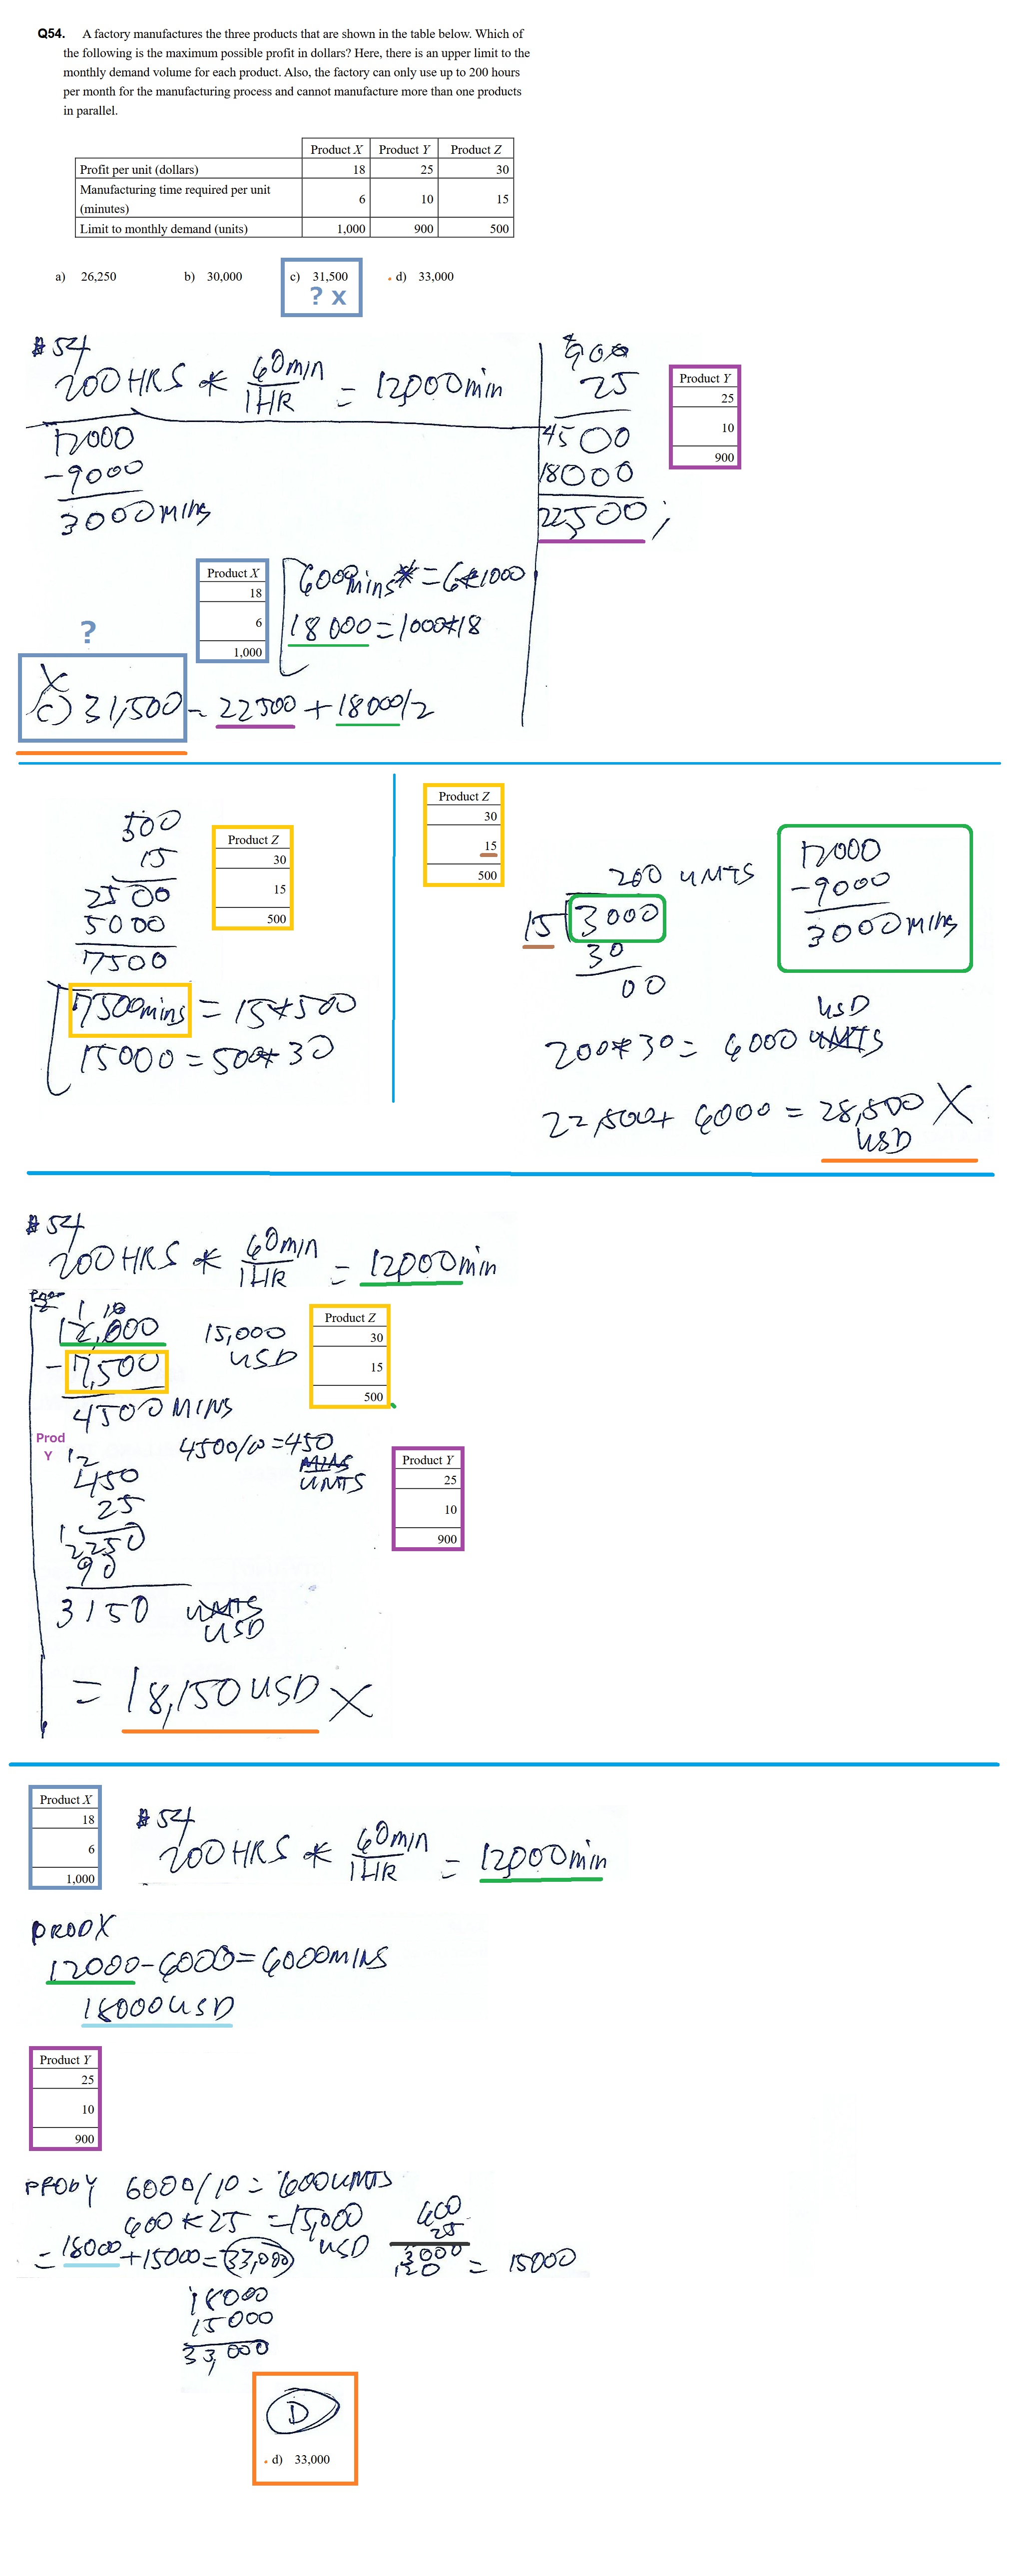 Q54. A factory manufactures the three products that are shown in the table below. Which of
the following is the maximum possible profit in dollars? Here, there is an upper limit to the
monthly demand volume for each product. Also, the factory can only use up to 200 hours
per month for the manufacturing process and cannot manufacture more than one products
in parallel.
Product X Product Y Product Z
Profit per unit (dollars) 18 25 30
Manufacturing time required per unit
(minutes) 6 10 15
Limit to monthly demand (units) 1,000 900 500
a) 26,250 b) 30,000 c) 31,500 d) 33,000
? x
#54
200 HRS * 60min / 1HR = 12,000min
12000
-9000
3000 mins
900
25
4500
18000
22,500;
Product Y
25
10
900
Product X
18
6
1,000
6000mins = 6*1000
18000 = 1000*18
?
X
c) 31,500 = 22500 + 18000/2
500
15
2500
5000
7500
Product Z
30
15
500
7500mins = 15*500
15000 = 500*30
Product Z
30
15
500
200 UNITS
15 3000
30
00
12000
-9000
3000 mins
USD
200*30 = 6000
22,500+ 6000 = 28,500 X
USD
#54
200 HRS * 60min / 1HR = 12,000min
1 10
12,000
- 7,500
4500 MINS
15,000
USD
Product Z
30
15
500
Prod
Y
4500/10=450
UNITS
12
450
25
1
2250
90
3150
USD
Product Y
25
10
900
= 18,150 USD X
Product X
18
6
1,000
#54
200 HRS * 60min / 1HR = 12,000min
PRODX
12000-6000= 6000MINS
18000USD
Product Y
25
10
900
PRODY 6000/10 = 600 UNITS
600 * 25 = 15,000
USD
= 18000 +15000=33,000
600
25
3000
120 = 15000
18000
15000
33,000
D
d) 33,000